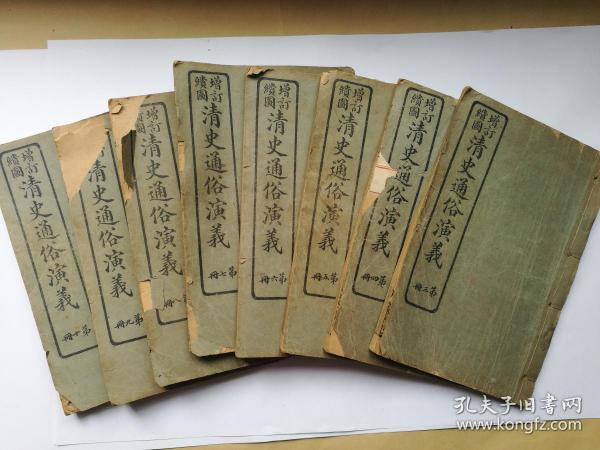 增訂
繪圖
清史通俗演義
第三冊
增訂
繪圖
清史通俗演義
第四冊
增訂
繪圖
清史通俗演義
第五冊
增訂
繪圖
清史通俗演義
第六冊
增訂
繪圖
清史通俗演義
第七冊
增訂
繪圖
清史通俗演義
第八冊
清史通俗演義
第九冊
增訂
繪圖
清史通俗演義
第十冊
孔夫子旧书网
www.kongfz.com